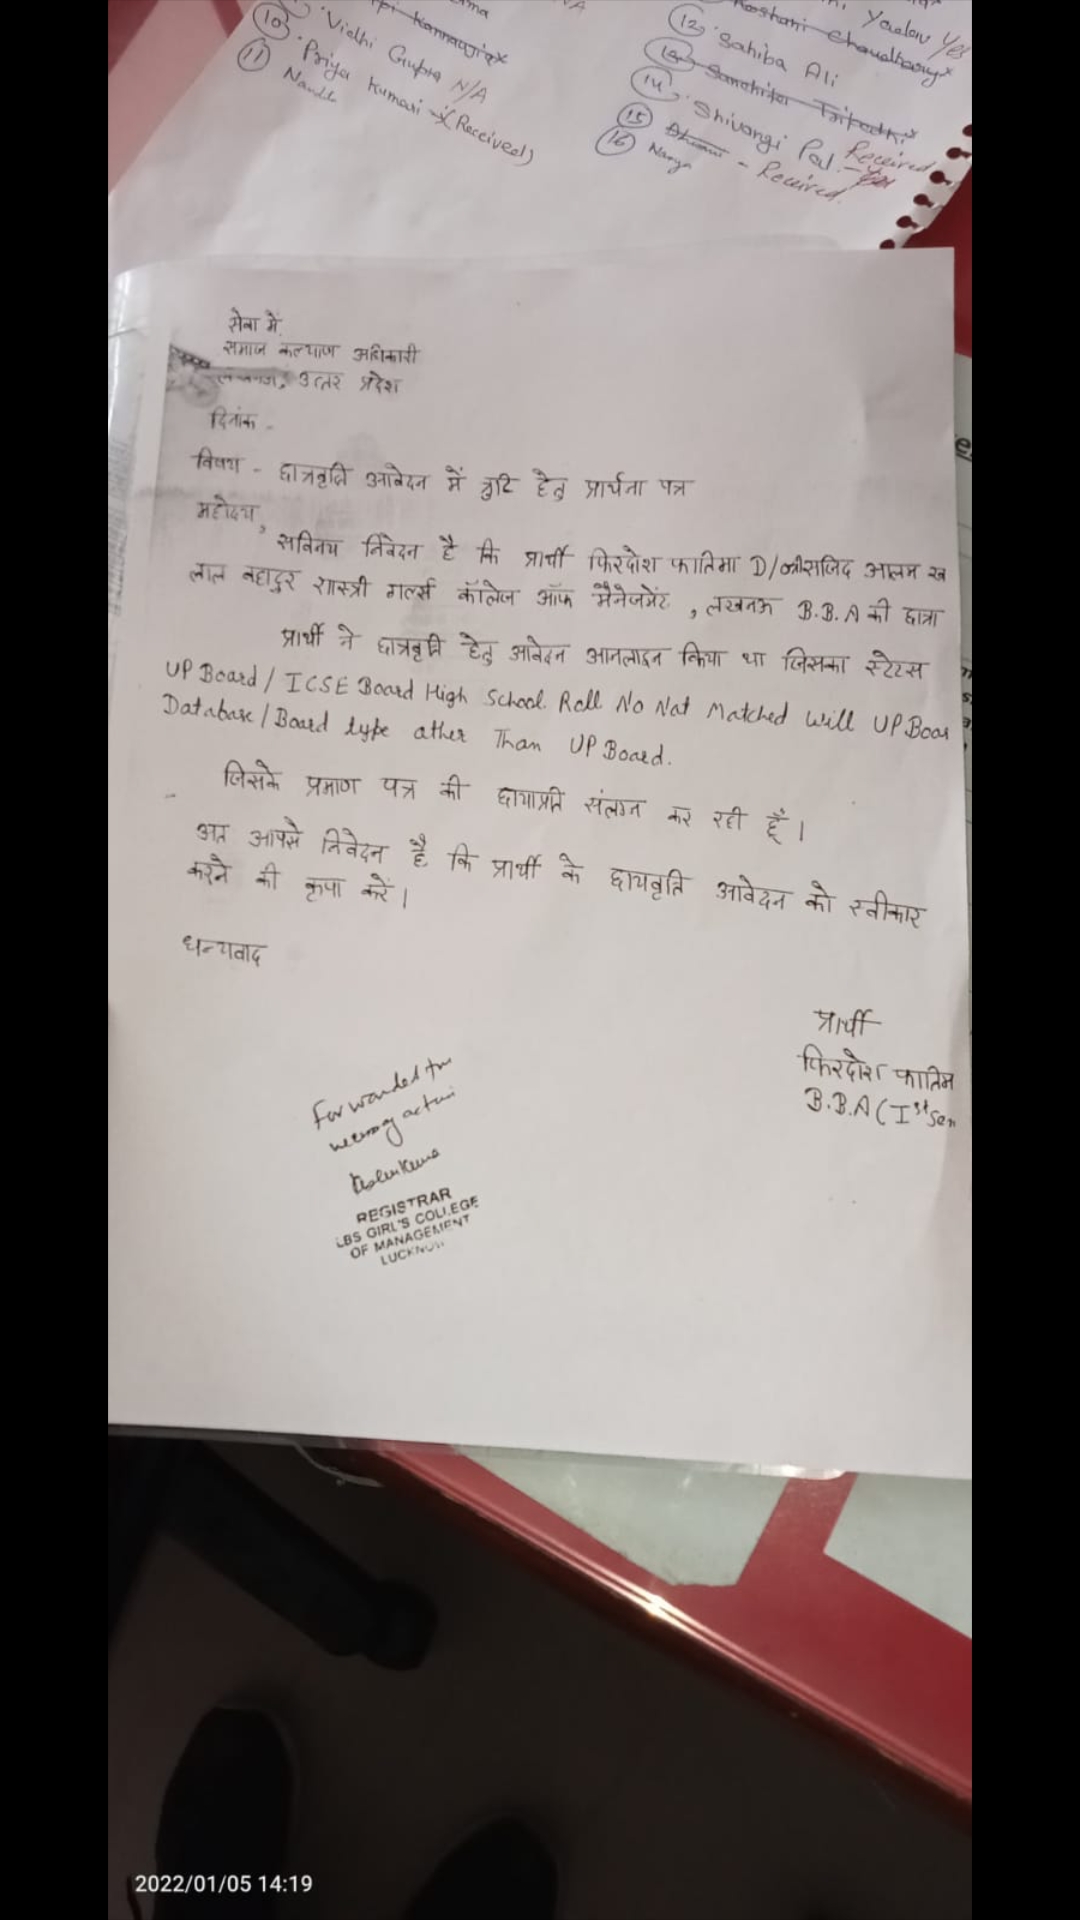 Vidhi Gupta N/A
(10) Priya Kumari - (Received)
(11)
Yadav Yes
Roshani Chaudhary
(12) Sahiba Ali
(13)
(14) Shivangi Pal - Received
(15) - Received
(16) Navya
सेवा में,
समाज कल्याण अधिकारी
लखनऊ, उत्तर प्रदेश
दिनांक -
विषय - छात्रवृति आवेदन में त्रुटि हेतु प्रार्थना पत्र
महोदय,
सविनय निवेदन है कि प्रार्थी फिरदोश फातिमा D/O आलम
लाल बहादुर शास्त्री गर्ल्स कॉलेज ऑफ मैनेजमेंट, लखनऊ B.B.A की छात्रा
प्रार्थी ने छात्रवृति हेतु आवेदन आनलाइन किया था जिसका स्टेटस
UP Board / ICSE Board High School Roll No Not Matched Will UP Boar
Database / Board type other Than UP Board.
जिसके प्रमाण पत्र की छायाप्रति संलग्न कर रही हूँ।
अत आपसे निवेदन है कि प्रार्थी के छायवृति आवेदन को स्वीकार
करने की कृपा करें।
धन्यवाद
प्रार्थी
फिरदोश फातिम
B.B.A (Ist Sem
Forwarded for
necessary action
REGISTRAR
LBS GIRL'S COLLEGE
OF MANAGEMENT
LUCKNOW
2022/01/05 14:19